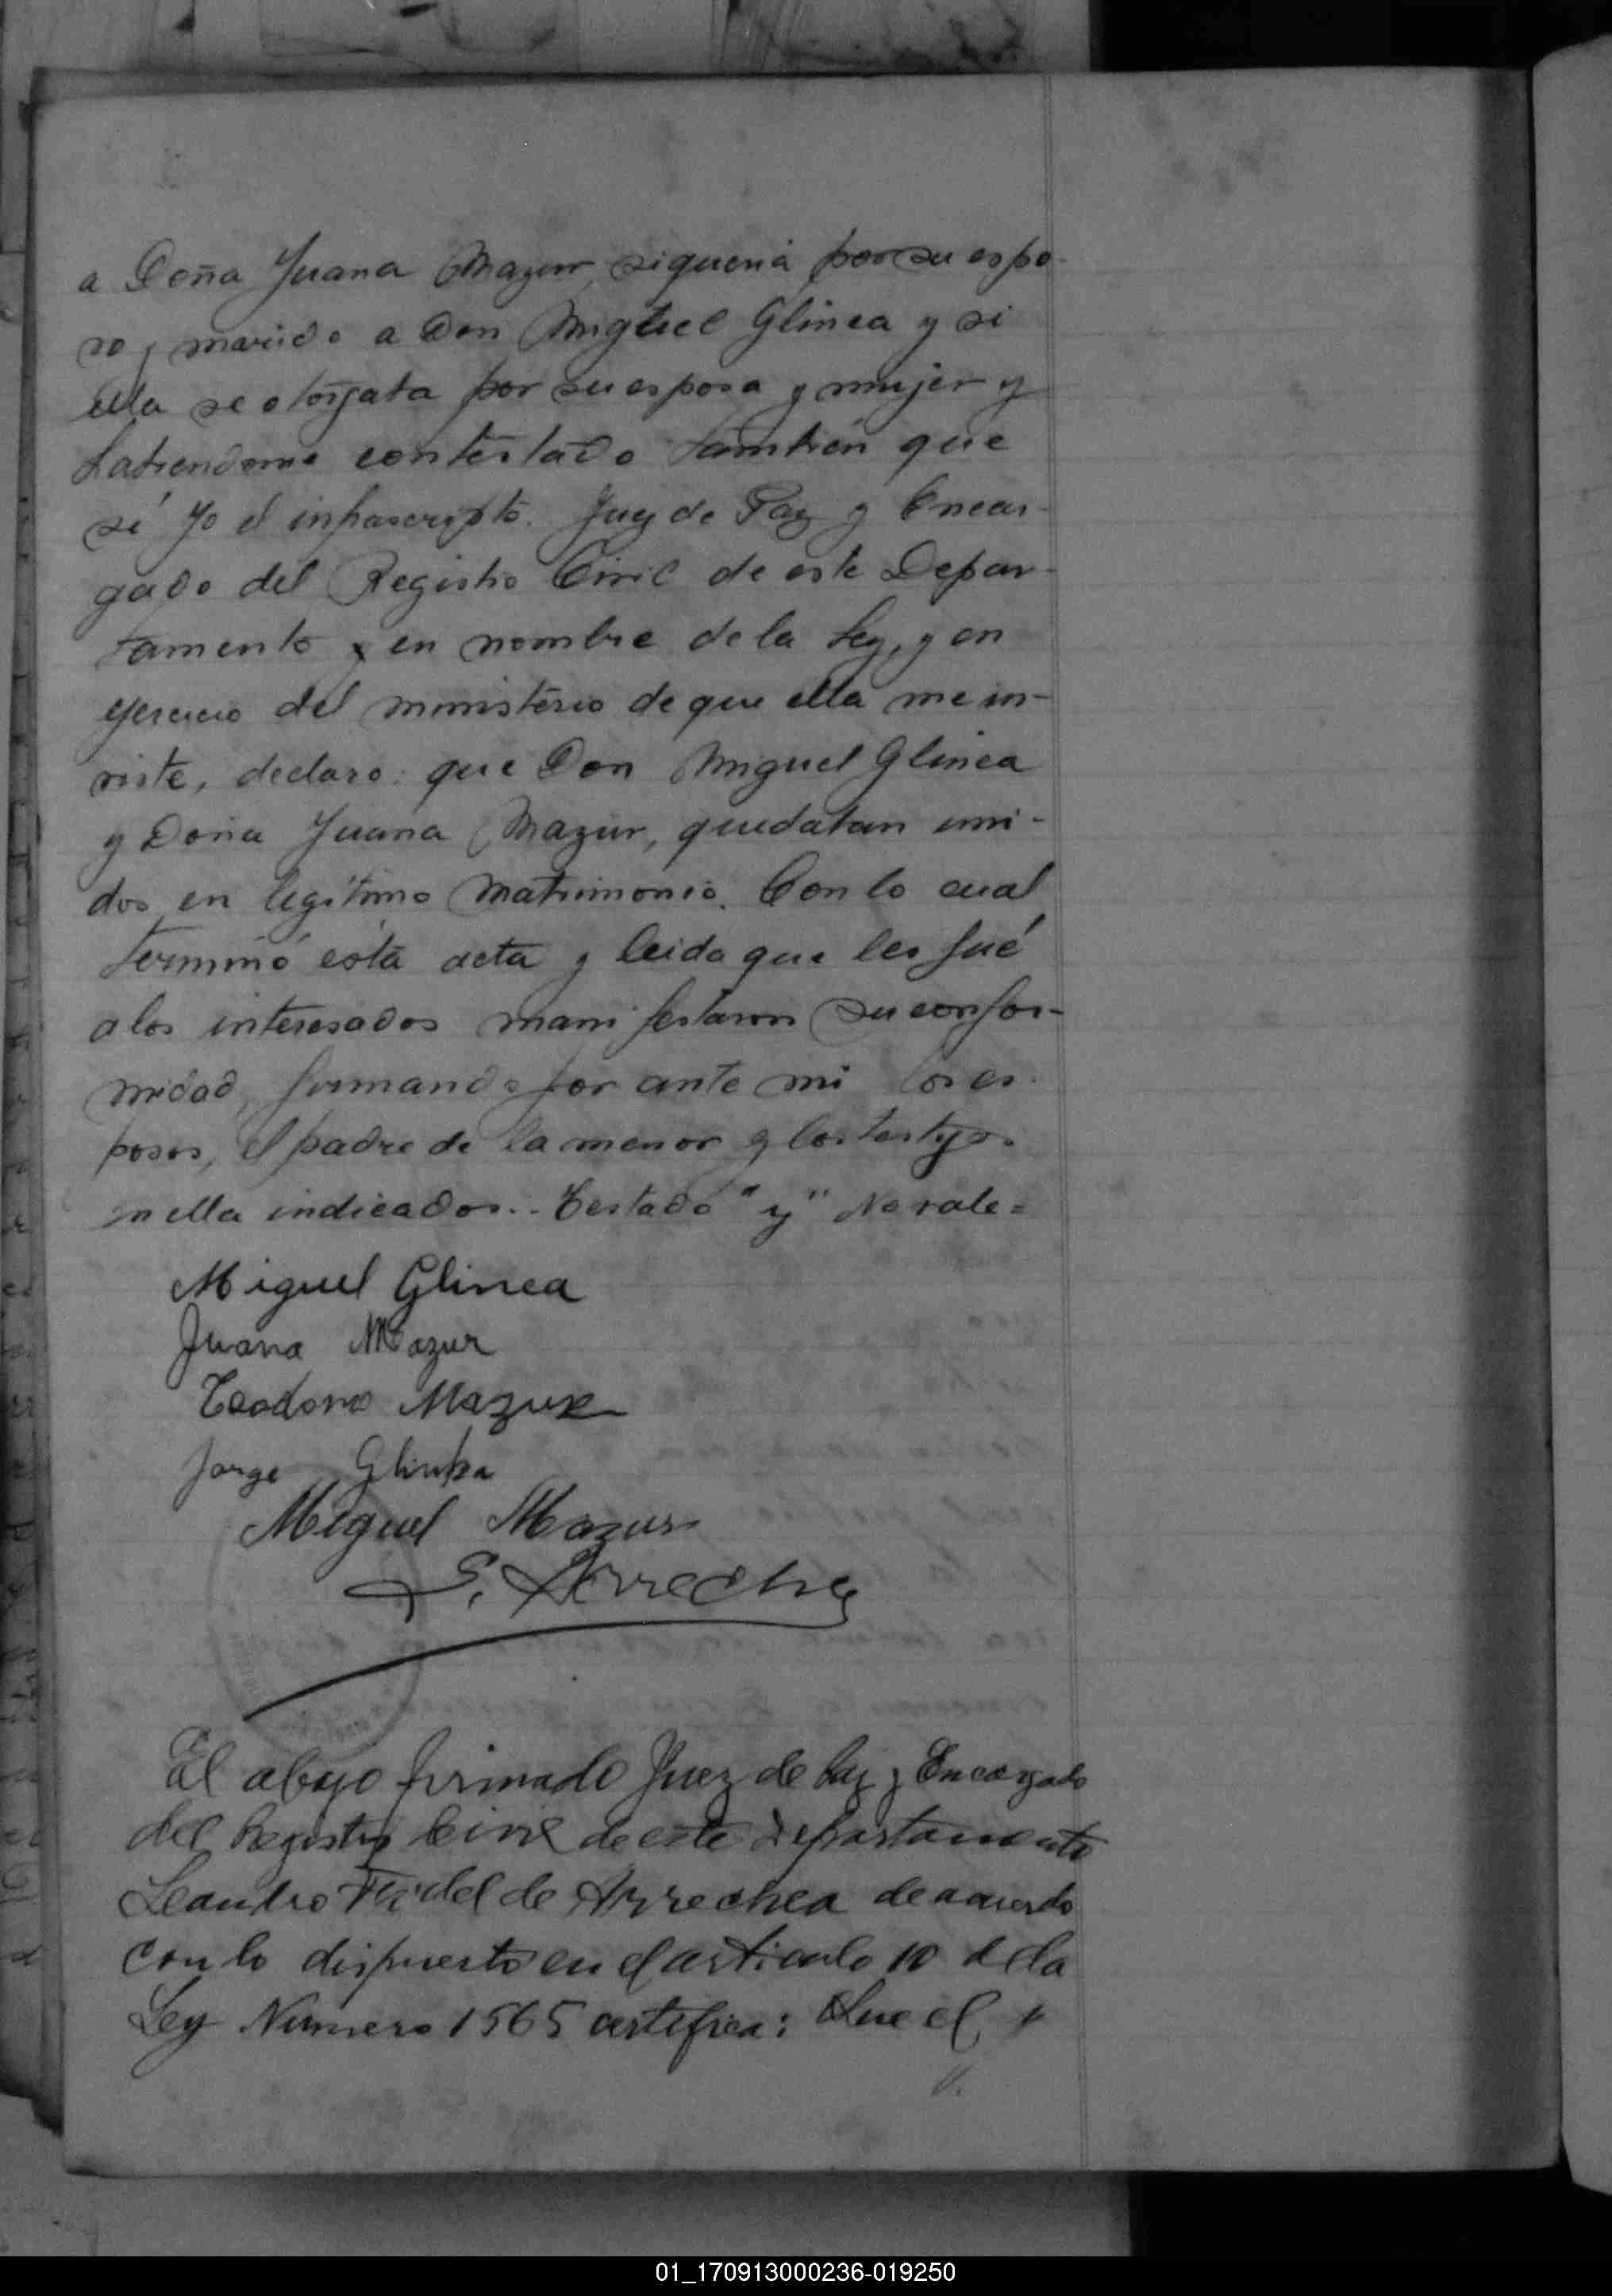 a Doña Juana Mazur, si queria por su espo-
so y marido a Don Miguel Glinea y si
ella se otorgaba por su esposa y mujer y
habiendome contestado tambien que
sí yo el infrascripto. Juez de Paz y Encar-
gado del Registro Civil de este Depar-
tamento y en nombre de la Ley, y en
ejercicio del ministerio de que ella me in-
viste, declaro: que Don Miguel Glinea
y Doña Juana Mazur, quedaban uni-
dos en legítimo Matrimonio. Con lo cual
terminó esta acta y leida que les fué
a los interesados manifestaron su confor-
midad, firmando por ante mi los es-
posos, el padre de la menor y los testigos
en ella indicados.. Testado "y" No vale=
Miguel Glinea
Juana Mazur
Teodoro Mazur
Jorge Glinka
Miguel Mazur
Arrechea
El abajo firmado Juez de Paz y Encargado
del Registro Civil de este Departamento
Leandro Fidel de Arrechea de acuerdo
con lo dispuesto en el articulo 10 de la
Ley Numero 1565 certifica: Que el
01_170913000236-019250